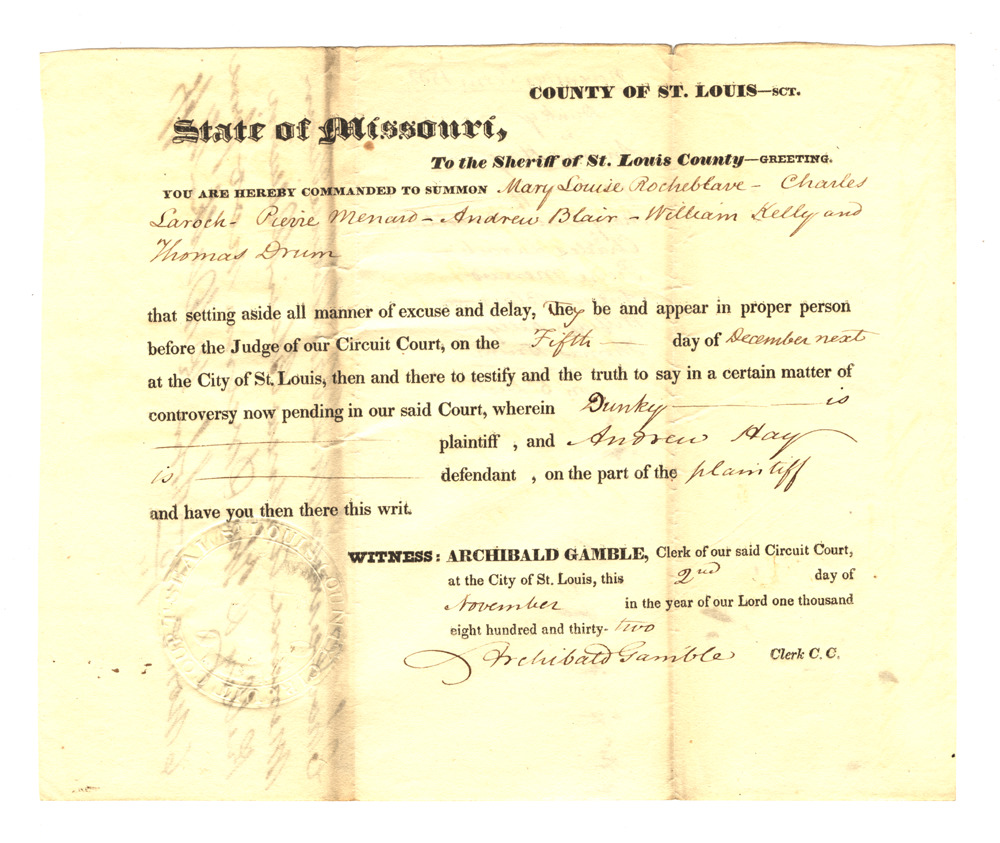 COUNTY OF ST. LOUIS—SCT.
State of Missouri,
To the Sheriff of St. Louis County—GREETING.
YOU ARE HEREBY COMMANDED TO SUMMON Mary Louise Rocheblave - Charles
Laroch - Pierre Menard - Andrew Blair - William Kelly and
Thomas Drum
that setting aside all manner of excuse and delay, They be and appear in proper person
before the Judge of our Circuit Court, on the Fifth — day of December next
at the City of St. Louis, then and there to testify and the truth to say in a certain matter of
controversy now pending in our said Court, wherein Dunky — is
plaintiff , and Andrew Hay
is — defendant , on the part of the plaintiff
and have you then there this writ.
WITNESS: ARCHIBALD GAMBLE, Clerk of our said Circuit Court,
at the City of St. Louis, this 2nd day of
November in the year of our Lord one thousand
eight hundred and thirty- two
Archibald Gamble Clerk C. C.